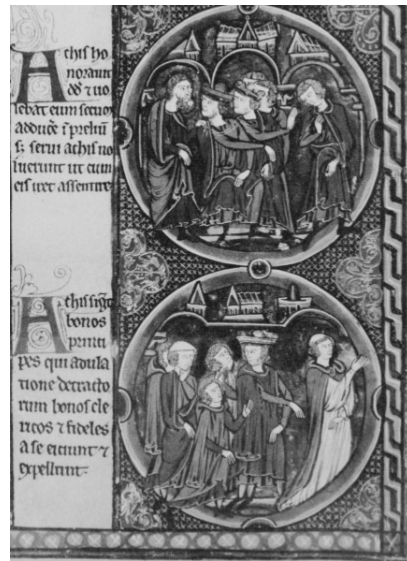 Achis ho
norauit
dd ⁊ uo
lebat eum secum
adduce̅ i̅ preliu̅
s; serui achis no
luerunt ut cum
eis iret assentire
Achis sig̅t
bonos
princi
pes qui adula
tione detracto
rum bonos cle
ricos ⁊ fideles
a se eiciunt ⁊
expellunt.